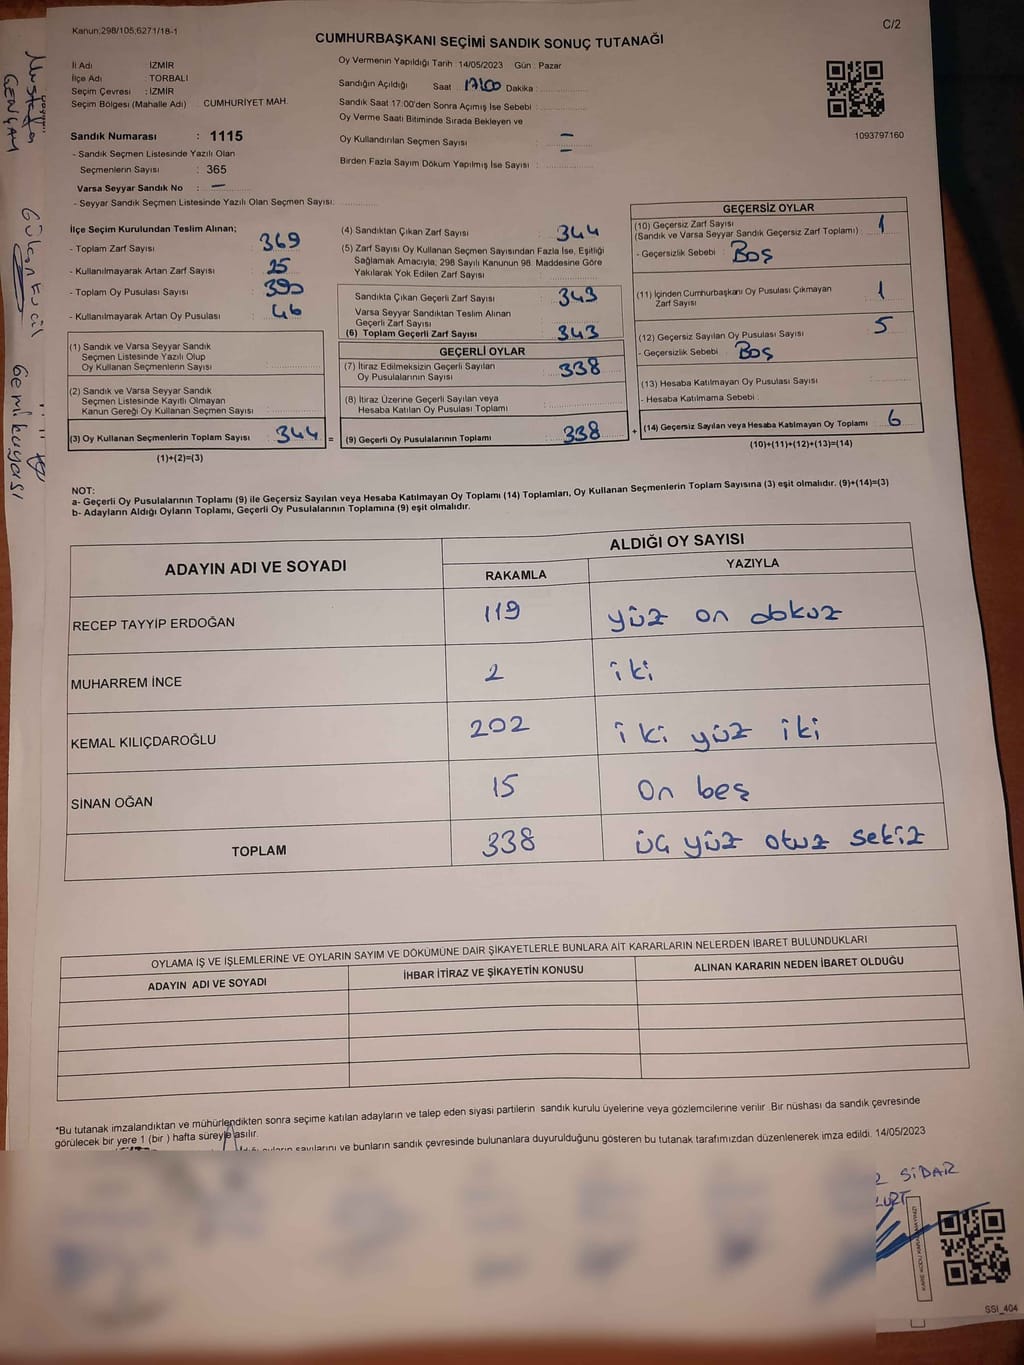 Kanun;298/105;6271/18-1
C/2
CUMHURBAŞKANI SEÇİMİ SANDIK SONUÇ TUTANAĞI
İl Adı İZMİR
İlçe Adı TORBALI
Seçim Çevresi : İZMİR
Seçim Bölgesi (Mahalle Adı) . CUMHURİYET MAH.
Sandık Numarası : 1115
- Sandık Seçmen Listesinde Yazılı Olan
Seçmenlerin Sayısı : 365
Varsa Seyyar Sandık No : —
- Seyyar Sandık Seçmen Listesinde Yazılı Olan Seçmen Sayısı:
Oy Vermenin Yapıldığı Tarih : 14/05/2023 Gün : Pazar
Sandığın Açıldığı Saat : 17:00 Dakika :
Sandık Saat 17:00'den Sonra Açımış İse Sebebi :
Oy Verme Saati Bitiminde Sırada Bekleyen ve
Oy Kullandırılan Seçmen Sayısı : —
Birden Fazla Sayım Döküm Yapılmış İse Sayısı : —
1093797160
İlçe Seçim Kurulundan Teslim Alınan;
- Toplam Zarf Sayısı : 369
- Kullanılmayarak Artan Zarf Sayısı : 25
- Toplam Oy Pusulası Sayısı : 390
- Kullanılmayarak Artan Oy Pusulası : 46
(1) Sandık ve Varsa Seyyar Sandık
Seçmen Listesinde Yazılı Olup
Oy Kullanan Seçmenlerin Sayısı :
(2) Sandık ve Varsa Seyyar Sandık
Seçmen Listesinde Kayıtlı Olmayan
Kanun Gereği Oy Kullanan Seçmen Sayısı :
(3) Oy Kullanan Seçmenlerin Toplam Sayısı : 344 =
(1)+(2)=(3)
(4) Sandıktan Çıkan Zarf Sayısı : 344
(5) Zarf Sayısı Oy Kullanan Seçmen Sayısından Fazla İse, Eşitliği
Sağlamak Amacıyla; 298 Sayılı Kanunun 98. Maddesine Göre
Yakılarak Yok Edilen Zarf Sayısı :
Sandıkta Çıkan Geçerli Zarf Sayısı : 343
Varsa Seyyar Sandıktan Teslim Alınan
Geçerli Zarf Sayısı :
(6) Toplam Geçerli Zarf Sayısı : 343
GEÇERLİ OYLAR
(7) İtiraz Edilmeksizin Geçerli Sayılan
Oy Pusulalarının Sayısı : 338
(8) İtiraz Üzerine Geçerli Sayılan veya
Hesaba Katılan Oy Pusulası Toplamı :
(9) Geçerli Oy Pusulalarının Toplamı : 338 +
GEÇERSİZ OYLAR
(10) Geçersiz Zarf Sayısı : 1
(Sandık ve Varsa Seyyar Sandık Geçersiz Zarf Toplamı)
- Geçersizlik Sebebi : Boş
(11) İçinden Cumhurbaşkanı Oy Pusulası Çıkmayan
Zarf Sayısı : 1
(12) Geçersiz Sayılan Oy Pusulası Sayısı : 5
- Geçersizlik Sebebi : Boş
(13) Hesaba Katılmayan Oy Pusulası Sayısı :
- Hesaba Katılmama Sebebi :
(14) Geçersiz Sayılan veya Hesaba Katılmayan Oy Toplamı : 6
(10)+(11)+(12)+(13)=(14)
NOT:
a- Geçerli Oy Pusulalarının Toplamı (9) ile Geçersiz Sayılan veya Hesaba Katılmayan Oy Toplamı (14) Toplamları, Oy Kullanan Seçmenlerin Toplam Sayısına (3) eşit olmalıdır. (9)+(14)=(3)
b- Adayların Aldığı Oyların Toplamı, Geçerli Oy Pusulalarının Toplamına (9) eşit olmalıdır.
ADAYIN ADI VE SOYADI ALDIĞI OY SAYISI
RAKAMLA YAZIYLA
RECEP TAYYİP ERDOĞAN 119 yüz on dokuz
MUHARREM İNCE 2 iki
KEMAL KILIÇDAROĞLU 202 iki yüz iki
SİNAN OĞAN 15 On beş
TOPLAM 338 üç yüz otuz sekiz
OYLAMA İŞ VE İŞLEMLERİNE VE OYLARIN SAYIM VE DÖKÜMÜNE DAİR ŞİKAYETLERLE BUNLARA AİT KARARLARIN NELERDEN İBARET BULUNDUKLARI
ADAYIN ADI VE SOYADI İHBAR İTİRAZ VE ŞİKAYETİN KONUSU ALINAN KARARIN NEDEN İBARET OLDUĞU
*Bu tutanak imzalandıktan ve mühürlendikten sonra seçime katılan adayların ve talep eden siyasi partilerin sandık kurulu üyelerine veya gözlemcilerine verilir. Bir nüshası da sandık çevresinde
görülecek bir yere 1 (bir ) hafta süreyle asılır.
sayılarını ve bunların sandık çevresinde bulunanlara duyurulduğunu gösteren bu tutanak tarafımızdan düzenlenerek imza edildi. 14/05/2023
SİDAR
KURT
SSI_404
Mustafa
GENÇAM